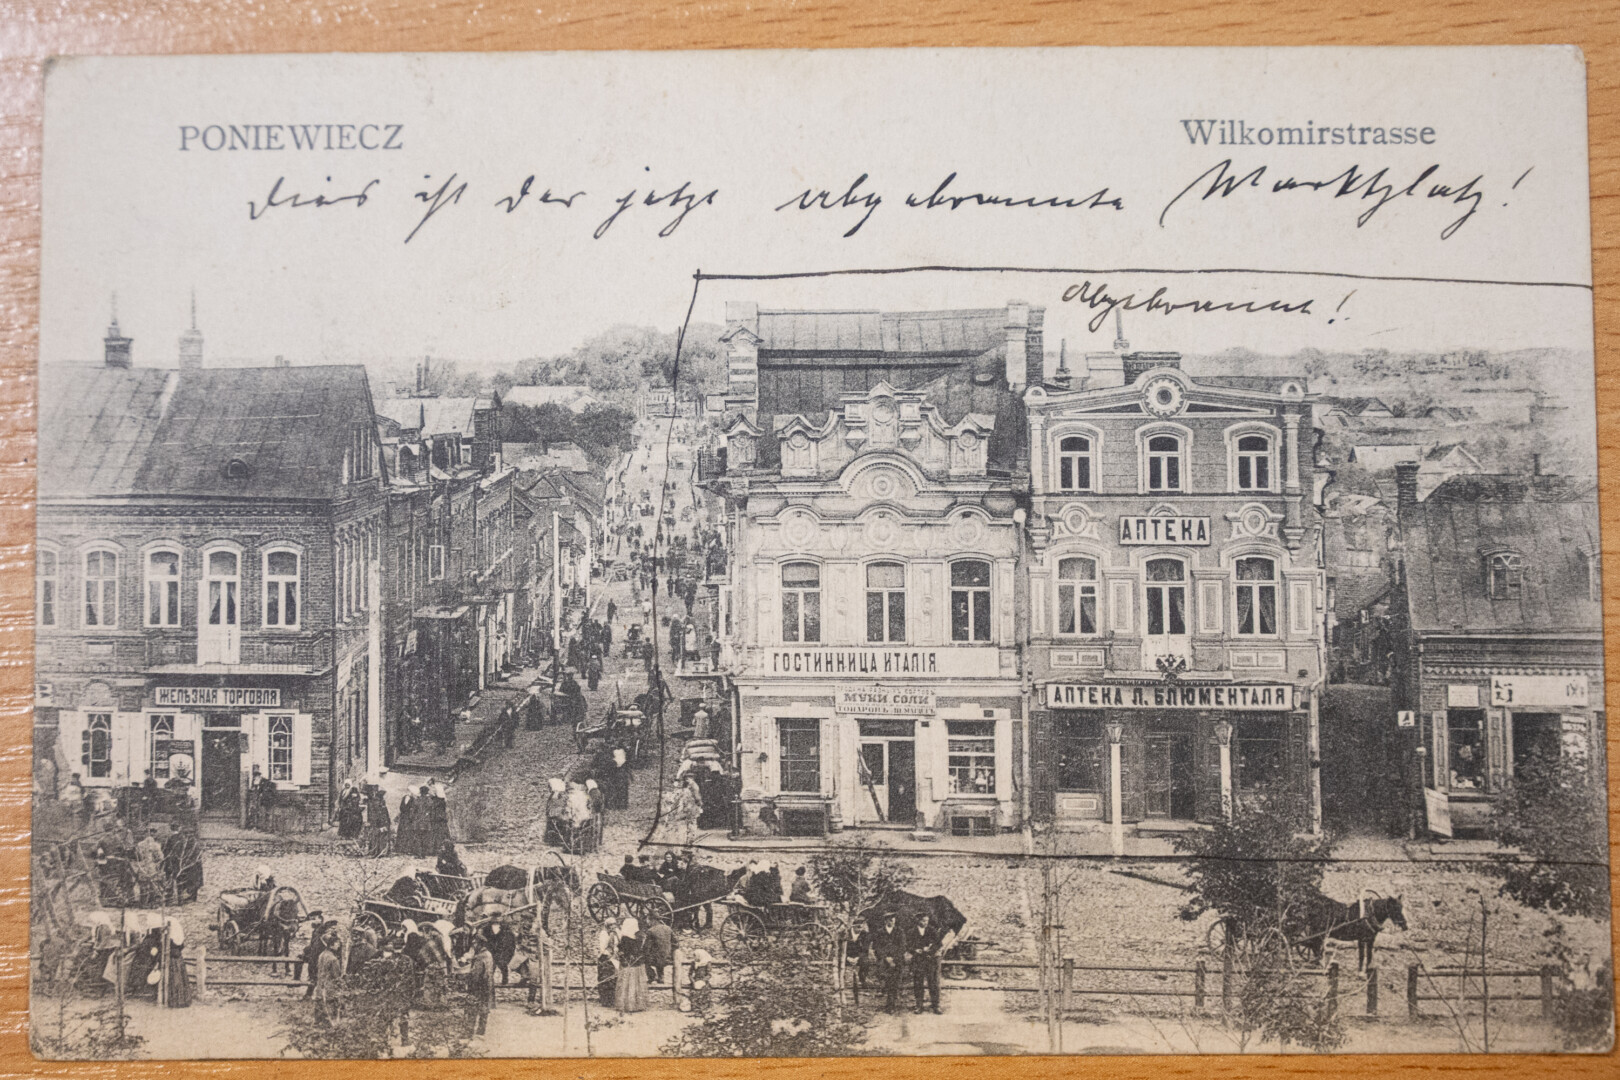 PONIEWIECZ
Wilkomirstrasse
Dies ist der jetzt abgebrannte Marktplatz!
Abgebrannt!
АПТЕКА
ГОСТИННИЦА ИТАЛІЯ.
МУКИ СОЛИ
АПТЕКА Л. БЛЮМЕНТАЛЯ
ЖЕЛѢЗНАЯ ТОРГОВЛЯ